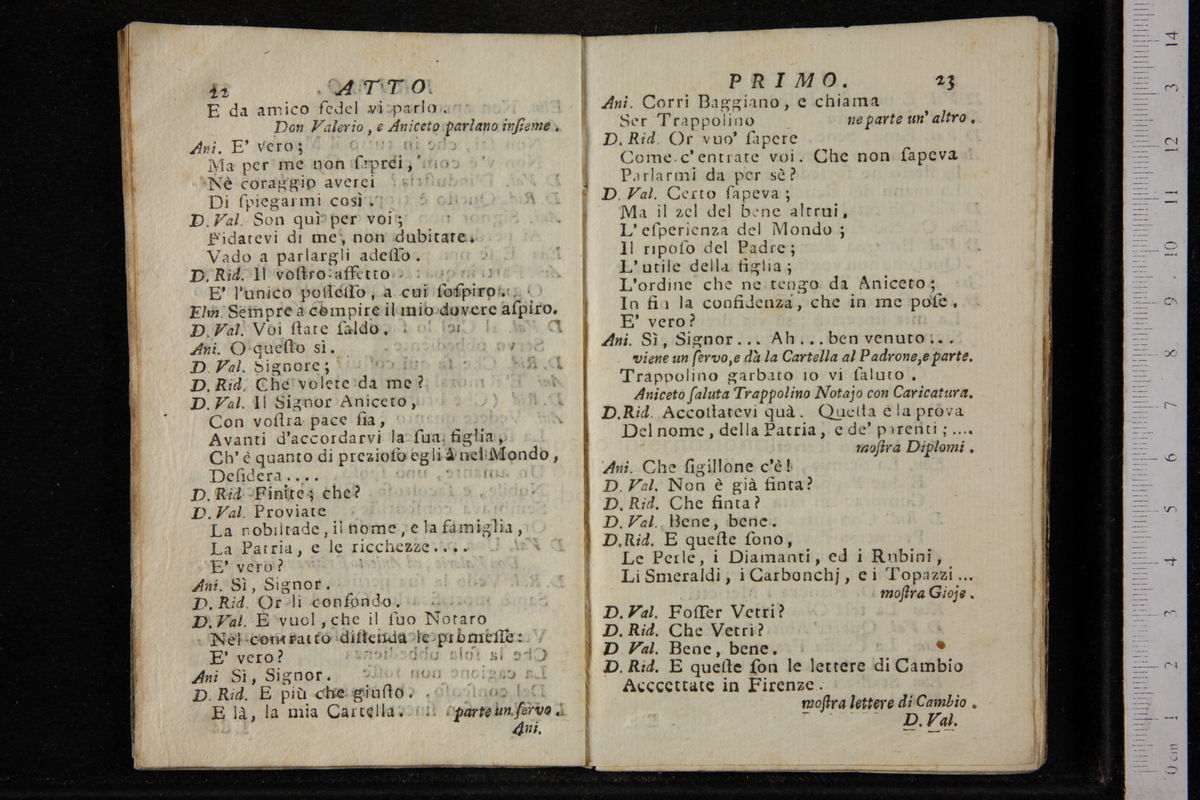 22 ATTO
E da amico fedel vi parlo.
Don Valerio, e Aniceto parlano insieme.
Ani. E' vero;
Ma per me non saprei,
Nè coraggio averei
Di spiegarmi così.
D. Val. Son quì per voi;
Fidatevi di me, non dubitate.
Vado a parlargli adesso.
D. Rid. Il vostro affetto
E' l'unico possesso, a cui sospiro.
Elm. Sempre a compire il mio dovere aspiro.
D. Val. Voi state saldo.
Ani. O questo sì.
D. Val. Signore;
D. Rid. Che volete da me?
D. Val. Il Signor Aniceto,
Con vostra pace sia,
Avanti d'accordarvi la sua figlia,
Ch'è quanto di prezioso egli à nel Mondo,
Desidera....
D. Rid Finite; che?
D. Val. Proviate
La nobiltade, il nome, e la famiglia,
La Patria, e le ricchezze....
E' vero?
Ani. Sì, Signor.
D. Rid. Or li confondo.
D. Val. E vuol, che il suo Notaro
Nel contratto distenda le promesse:
E' vero?
Ani Sì, Signor.
D. Rid. E più che giusto.
E là, la mia Cartella. parte un servo.
Ani.
PRIMO. 23
Ani. Corri Baggiano, e chiama
Ser Trappolino ne parte un' altro.
D. Rid. Or vuo' sapere
Come c'entrate voi. Che non sapeva
Parlarmi da per sè?
D. Val. Certo sapeva;
Ma il zel del bene altrui,
L' esperienza del Mondo;
Il riposo del Padre;
L'utile della figlia;
L'ordine che ne tengo da Aniceto;
In fin la confidenza, che in me pose.
E' vero?
Ani. Sì, Signor... Ah... ben venuto...
viene un servo, e dà la Cartella al Padrone, e parte.
Trappolino garbato io vi saluto.
Aniceto saluta Trappolino Notajo con Caricatura.
D. Rid. Accostatevi quà. Questa è la prova
Del nome, della Patria, e de' parenti;....
mostra Diplomi.
Ani. Che sigillone c'è!
D. Val. Non è già finta?
D. Rid. Che finta?
D. Val. Bene, bene.
D. Rid. E queste sono,
Le Perle, i Diamanti, ed i Rubini,
Li Smeraldi, i Carbonchj, e i Topazzi...
mostra Gioje.
D. Val. Fosser Vetri?
D. Rid. Che Vetri?
D Val. Bene, bene.
D. Rid. E queste son le lettere di Cambio
Acccettate in Firenze.
mostra lettere di Cambio.
D. Val.
0 cm 1 2 3 4 5 6 7 8 9 10 11 12 13 14